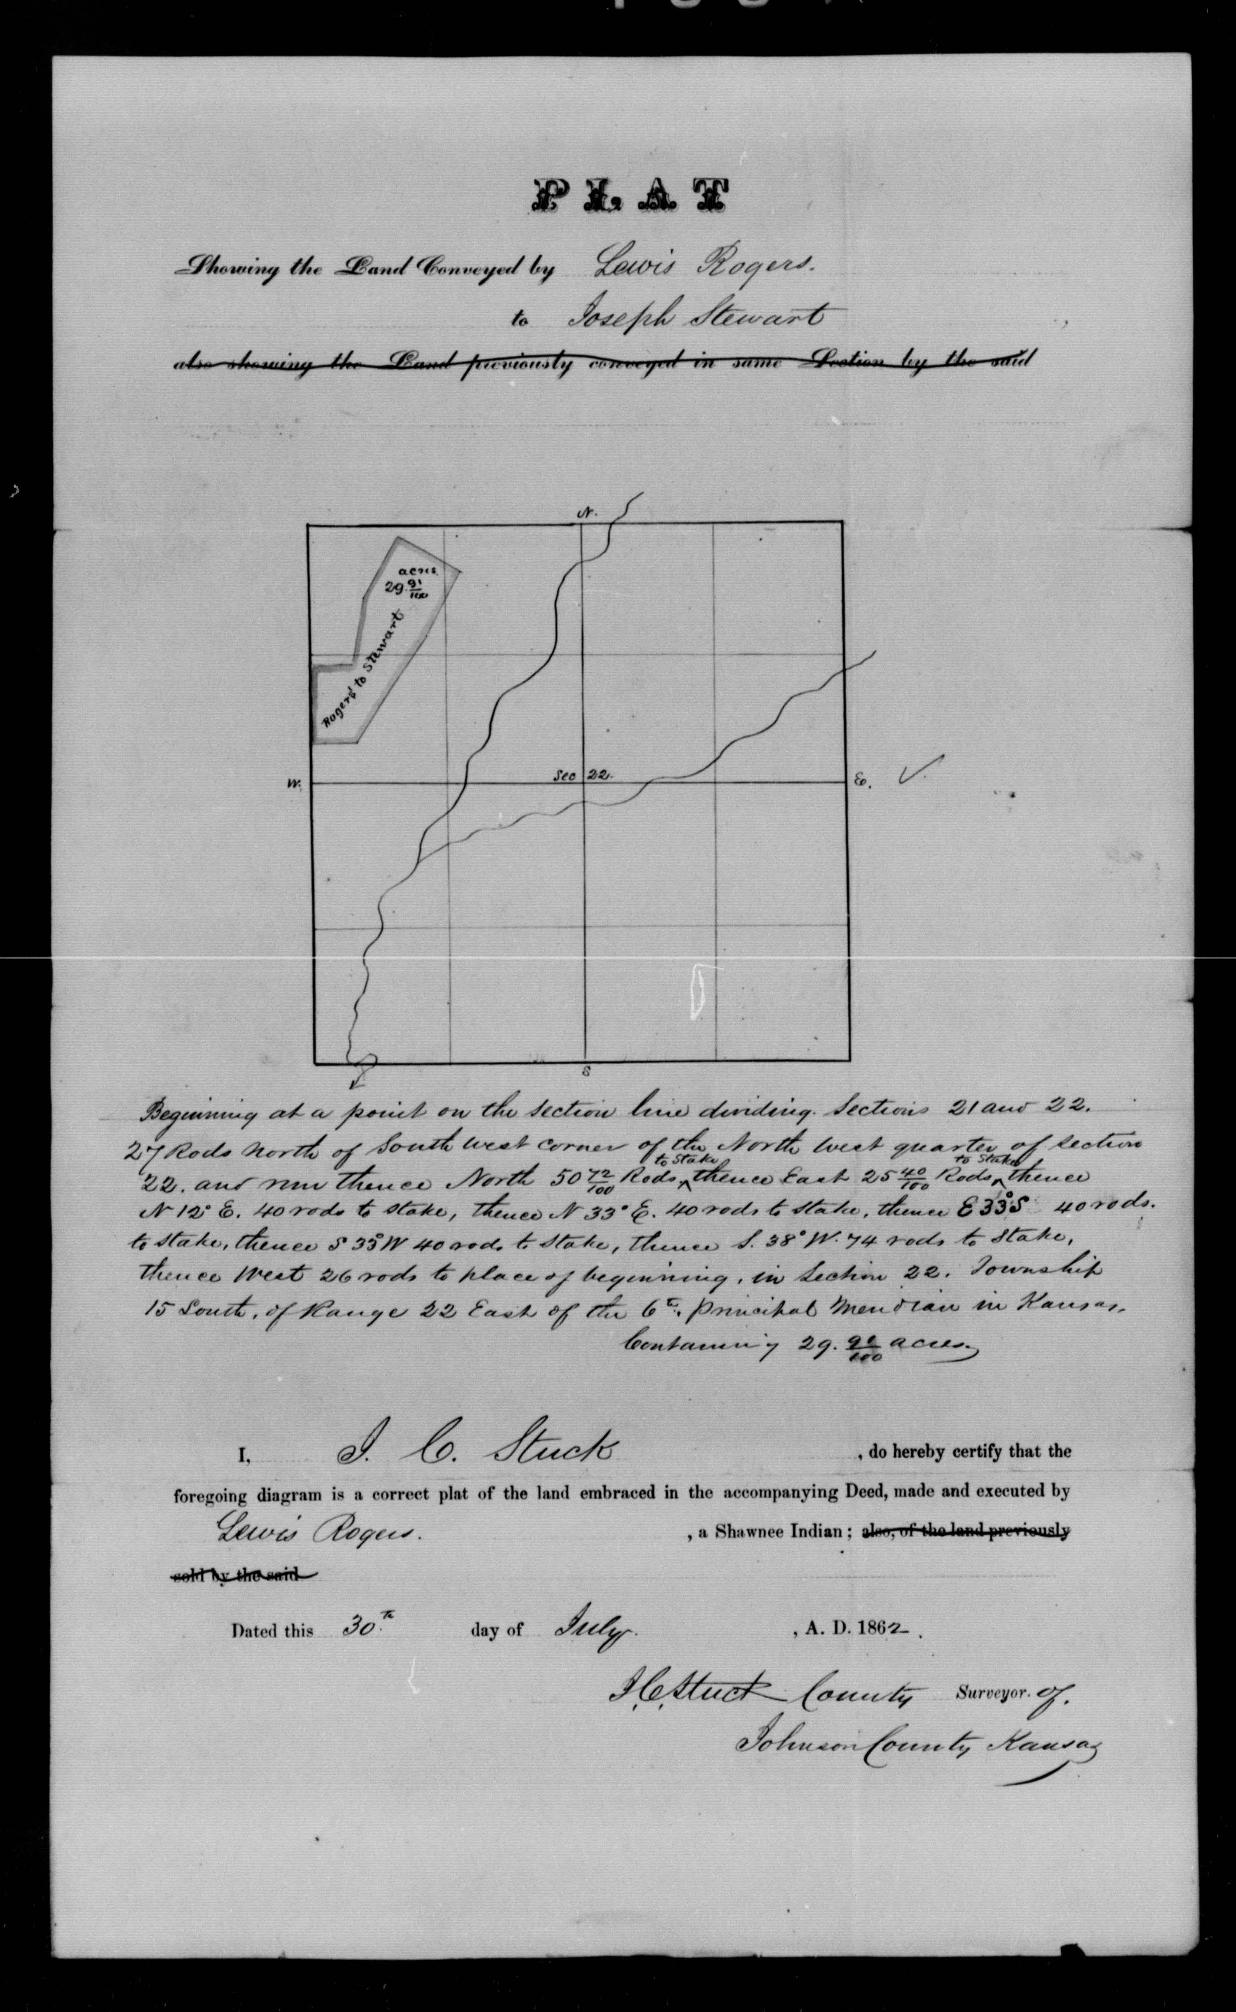 PLAT
Showing the Land Conveyed by Lewis Rogers.
to Joseph Stewart
also showing the Land previously conveyed in same Section by the said
N.
acres
29 91/100
Rogers to Stewart
W.
Sec 22.
E.
S
Beginning at a point on the section line dividing Sections 21 and 22.
27 Rods North of South west corner of the North west quarter of section
to Stake to Stake
22. and run thence North 50 72/100 Rods, thence East 25 40/100 Rods, thence
N 12° E. 40 rods to stake, thence N 33° E. 40 rods to stake, thence E 33° S 40 rods.
to stake, thence S 33° W 40 rods to stake, thence S. 38° W. 74 rods to stake,
thence West 26 rods to place of beginning, in Section 22. Township
15 South, of Range 22 East of the 6th. principal Meridian in Kansas.
Containing 29. 91/100 acres.
I, J. C. Stuck , do hereby certify that the
foregoing diagram is a correct plat of the land embraced in the accompanying Deed, made and executed by
Lewis Rogers. , a Shawnee Indian ; also, of the land previously
sold by the said
Dated this 30th day of July. , A. D. 1862.
J. C. Stuck County Surveyor of.
Johnson County Kansas